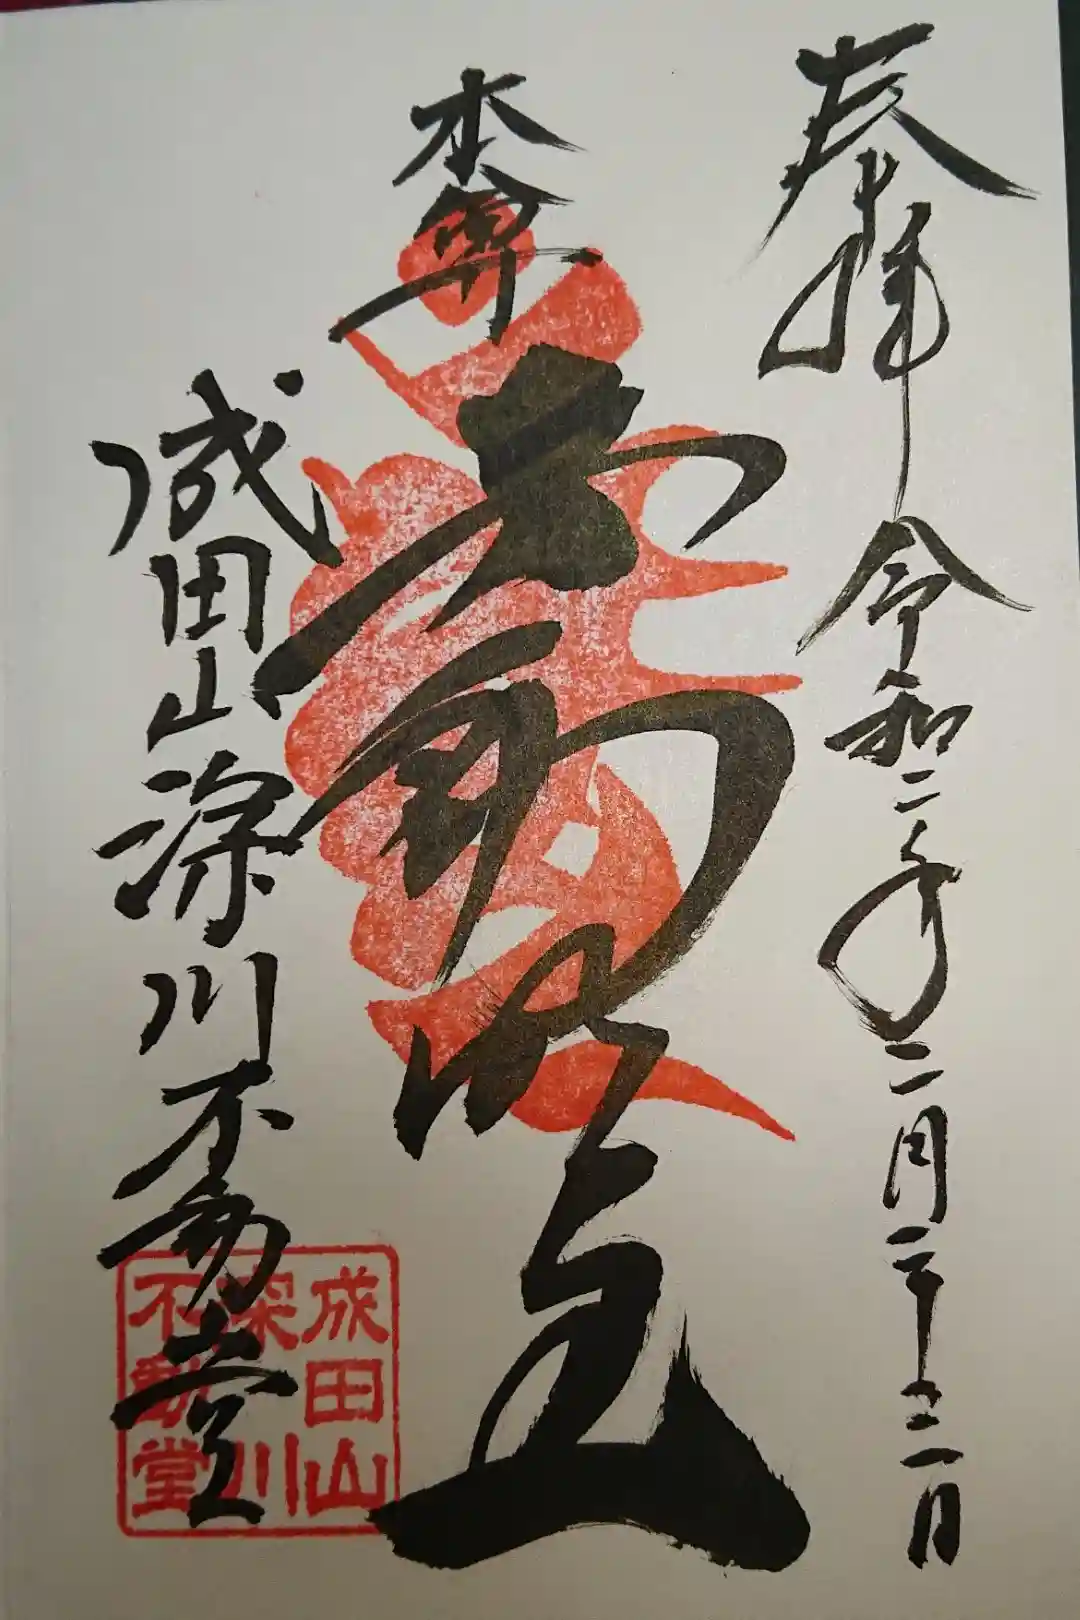 奉拝 令和二年二月二十三日
本尊
不動明王
成田山深川不動堂
成田山
深川
不動堂